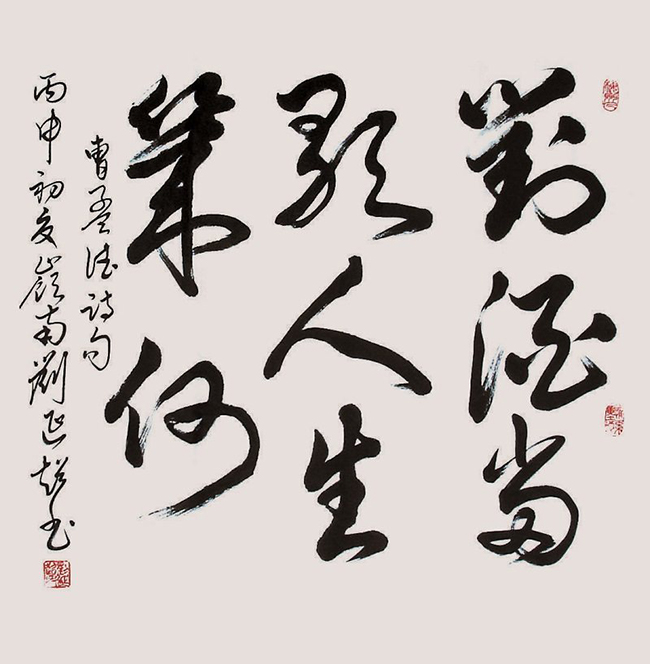 對酒當
歌人生
幾何
曹孟德詩句
丙申初夏嶺南劉延超書